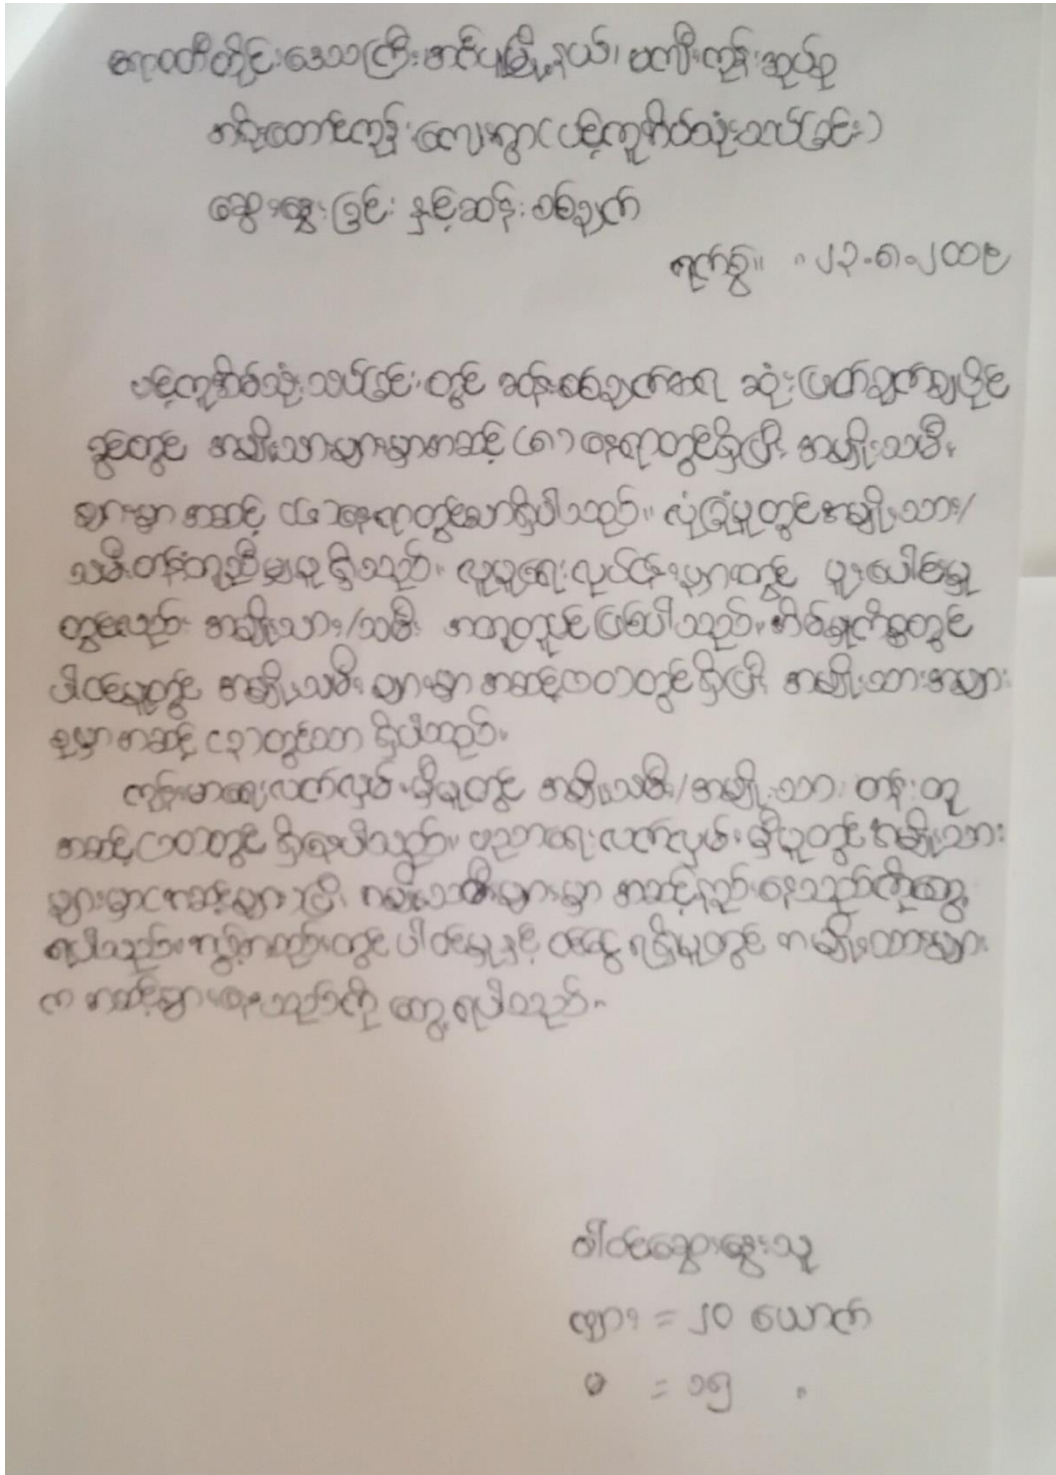 ဧရာဝတီတိုင်းဒေသကြီး၊ အင်္ဂပူမြို့နယ်၊ မကျီးကုန်းအုပ်စု
ကျေးရွာ (ပင့်ကူအိမ်သုံးသပ်ခြင်း)
ဆွေးနွေးခြင်း နှင့်ဆန်းစစ်ချက်
ရက်စွဲ။ ။ ၂၃.၈.၂၀၁၉
ပင့်ကူအိမ်သုံးသပ်ခြင်းတွင် ဆန်းစစ်ချက်အရ ဆုံးဖြတ်ချက်ချပိုင်
ခွင့်တွင် အမျိုးသားများမှာအဆင့် (၈) နေရာတွင်ရှိပြီး အမျိုးသမီး
များမှာ အဆင့် (၆) နေရာတွင်သာရှိပါသည်။ လုံခြုံမှုတွင်အမျိုးသား/
သမီးတန်းတူညီမျှမှု ရှိသည်။ လူမှုရေးလုပ်ငန်းများတွင် ပူးပေါင်းမှု
တွင်လည်း အမျိုးသား/သမီး အတူတူပင်ဖြစ်ပါသည်။ အိမ်မှုကိစ္စတွင်
ပါဝင်မှုတွင် အမျိုးသမီးများမှာ အဆင့်(၁၀)တွင်ရှိပြီး အမျိုးသားအများ
စုမှာအဆင့် (၃)တွင်သာ ရှိပါသည်။
ကျန်းမာရေးလက်လှမ်းမှီမှုတွင် အမျိုးသမီး/အမျိုးသား တန်းတူ
အဆင့်(၁၀)တွင် ရှိနေပါသည်။ ပညာရေးလက်လှမ်းမှီမှုတွင် အမျိုးသား
များမှာအဆင့်များပြီး အမျိုးသမီးများမှာ အဆင့်နည်းနေသည်ကိုတွေ့
ရပါသည်။ ပါဝင်မှုနှင့် ဝင်ငွေရရှိမှုတွင် အမျိုးသားများ
က အဆင့်များနေသည်ကို တွေ့ရပါသည်။
ပါဝင်ဆွေးနွေးသူ
ကျား = ၂၀ ယောက်
မ = ၁၅ "